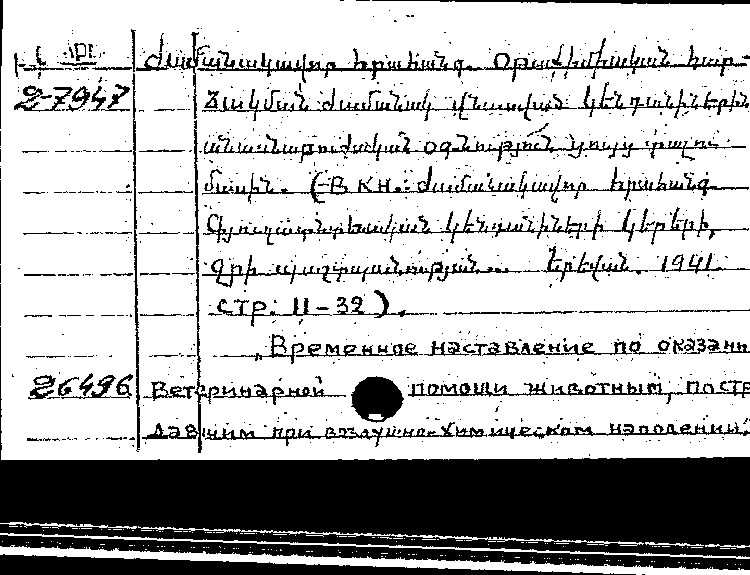 Ժամանակավոր հրահանգ. Օրաքիմիական հար-
2-7947 ձակման ժամանակ վնասված կենդանիներին
անասնաբուժական օգնություն ցույց տալու
մասին. (-В кн.: Ժամանակավոր հրահանգ
Գյուղատնտեսական կենդանիների կերերի,
ջրի պաշտպանության... Երևան. 1941.
стр: 11-32).
„Временное наставление по оказани
26496 Ветеринарной помощи животным, постр
давшим при воздушно-химическом наподении.